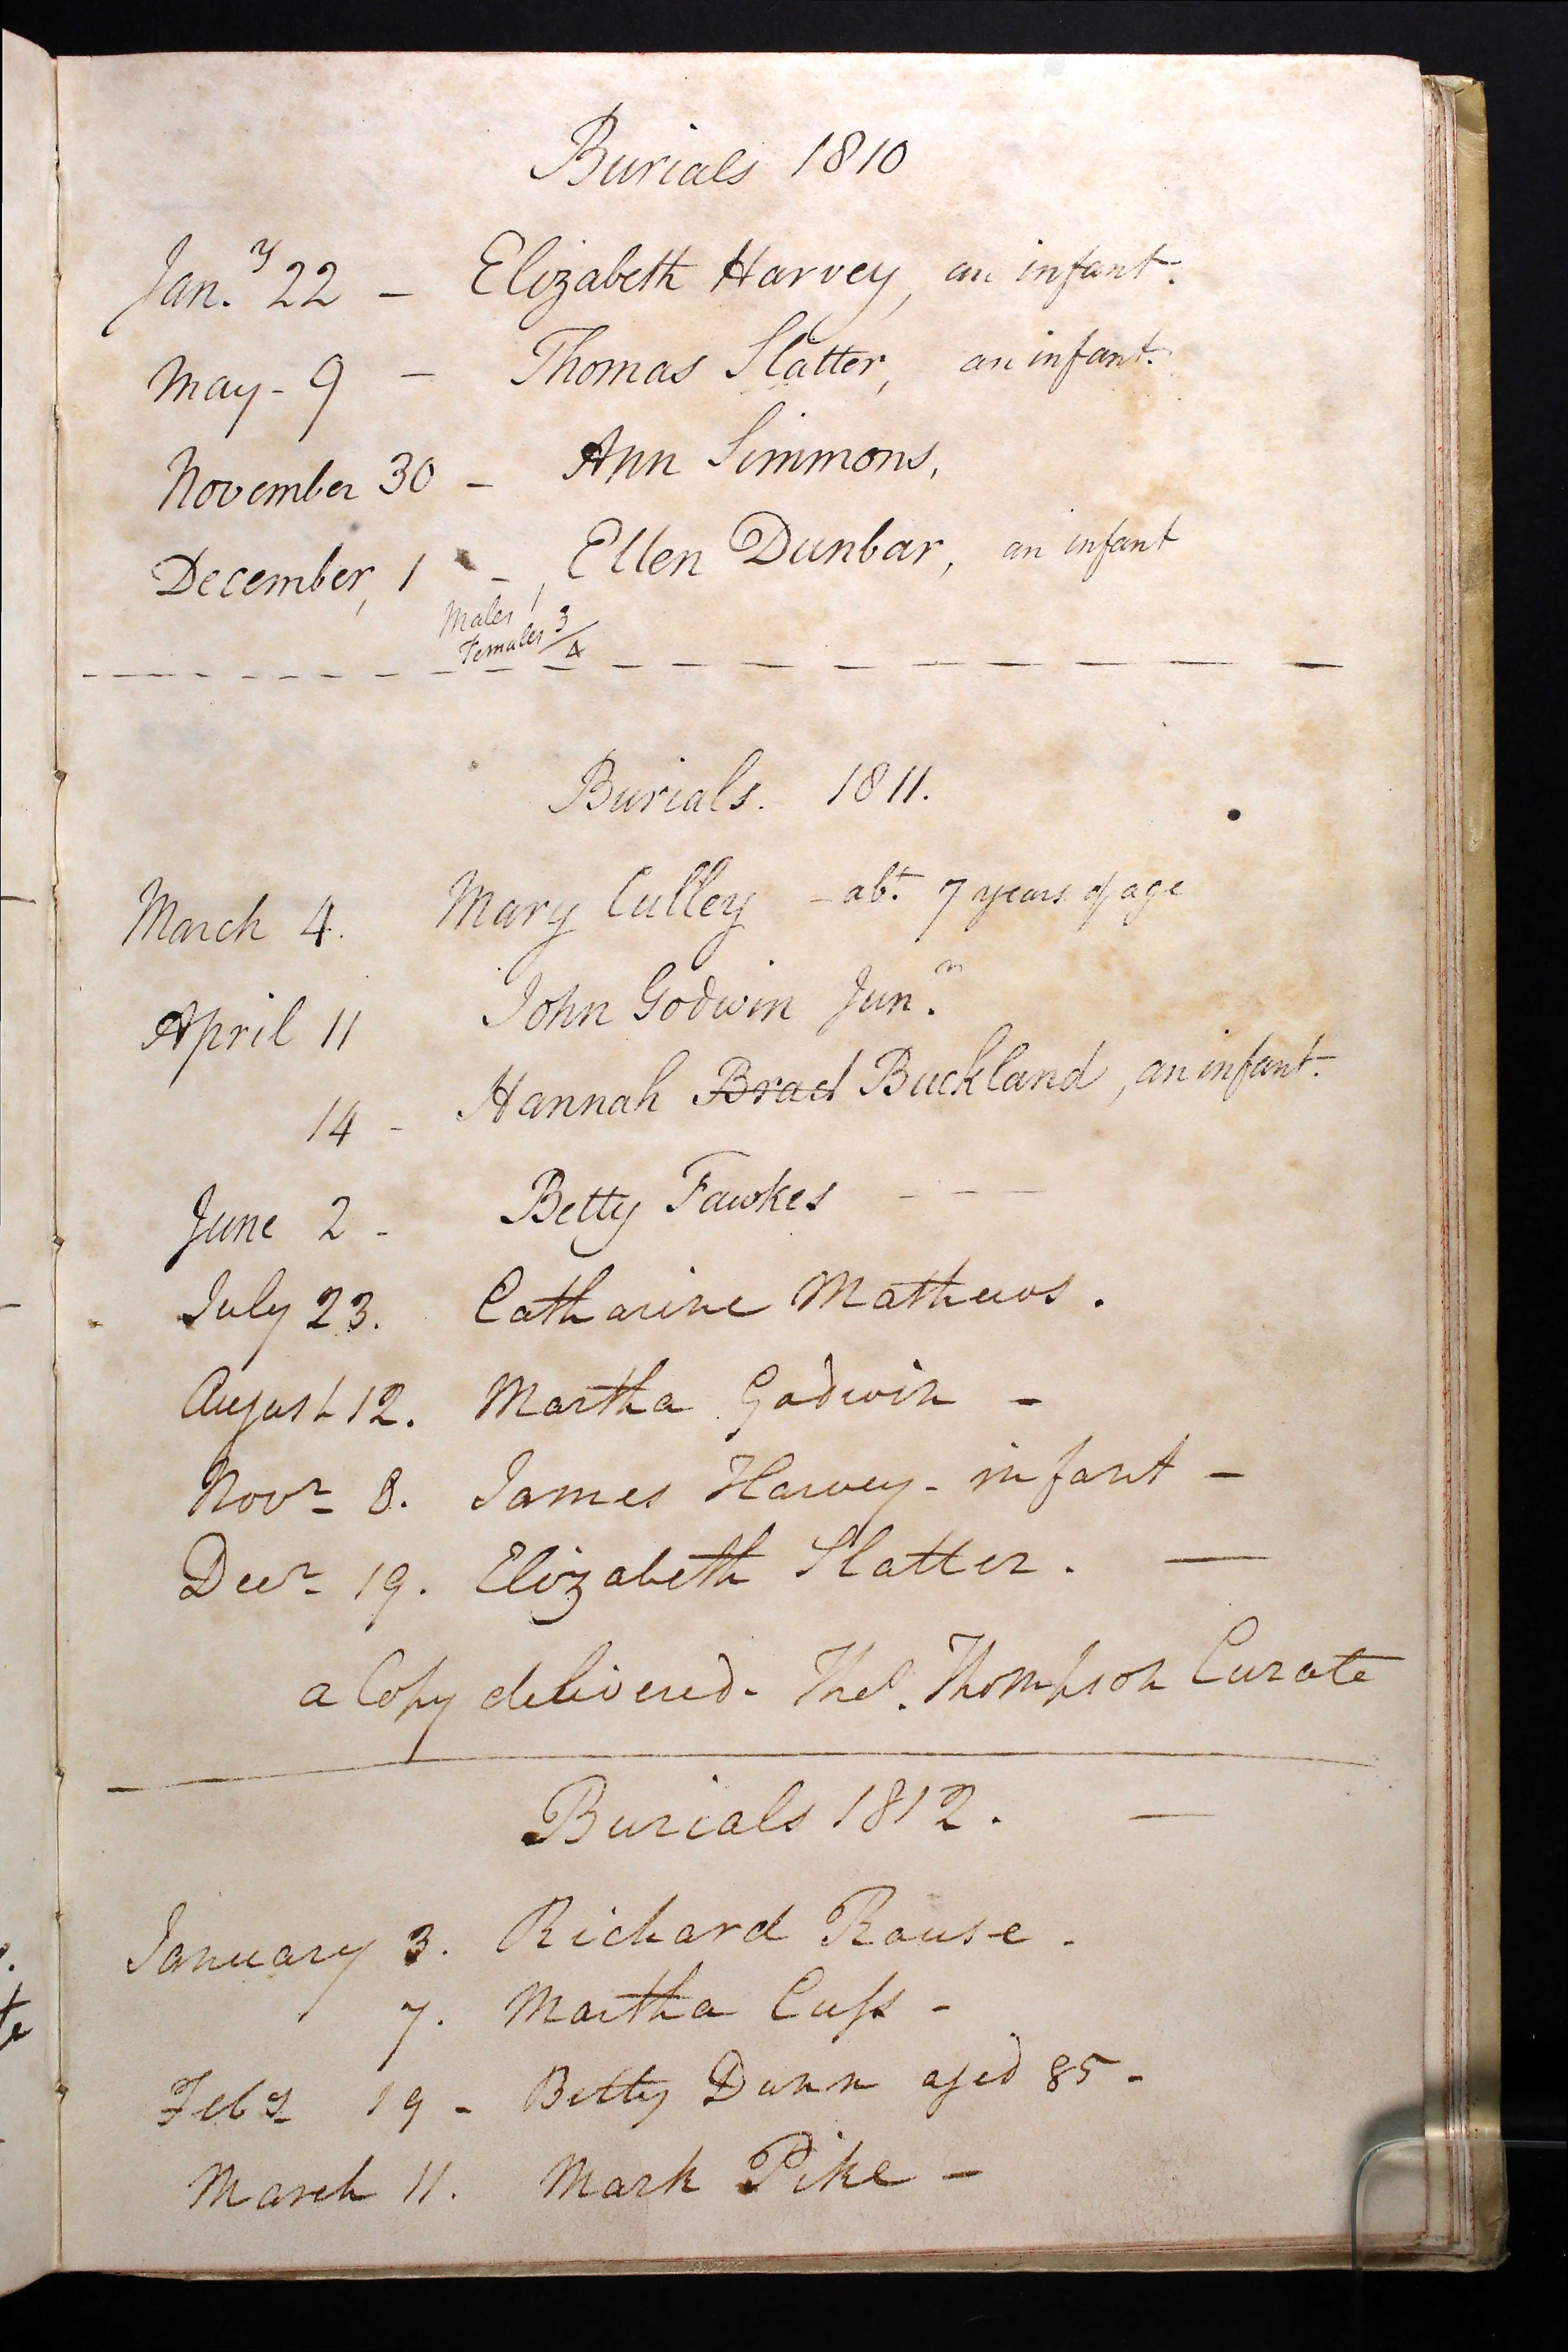 Burials 1810
Jan.y 22 - Elizabeth Harvey, an infant.
May - 9 - Thomas Slatter, an infant.
November 30 - Ann Simmons,
December, 1 - Ellen Dunbar, an infant
Males 1
Females 3
4
Burials. 1811.
March 4. Mary Culley - abt. 7 years of age
April 11 John Godwin Junr.
14 - Hannah Brad Buckland, an infant.
June 2 - Betty Fawkes - - -
July 23. Catharine Mathews.
August 12. Martha Godwin -
Novr 8. James Harvey - infant -
Decr 19. Elizabeth Slatter. -
a Copy delivered - Thos. Thompson Curate
Burials 1812. -
January 3. Richard Rouse -
7. Martha Cuss -
Feby 19 - Betty Dunn aged 85 -
March 11. Mark Pike -